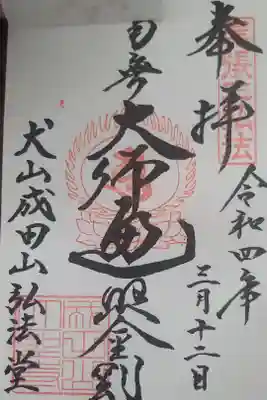 奉拝
令和四年
三月十二日
南無
大師遍照金剛
犬山成田山弘法堂